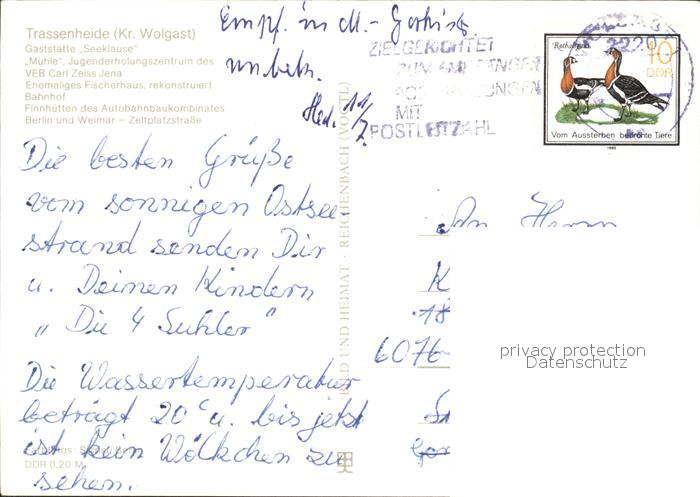 Trassenheide (Kr. Wolgast)
Gaststätte „Seeklause"
„Mühle", Jugenderholungszentrum des
VEB Carl Zeiss Jena
Ehemaliges Fischerhaus, rekonstruiert
Bahnhof
Finnhütten des Autobahnbaukombinates
Berlin und Weimar – Zeltplatzstraße
Empf. in M.-
unbek.
11/7.
Die besten Grüße
vom sonnigen Ostsee-
strand senden Dir
u. Deinen Kindern
„Die 4 Suhler"
Die Wassertemperatur
beträgt 20° u. bis jetzt
ist kein Wölkchen zu
sehen.
DDR 0,20 M
BILD UND HEIMAT · REICHENBACH (VOGTL)
ZIELGERICHTET
ZUM EMPFÄNGER
MIT
POSTLEITZAHL
WOLGAST 1
2220
Rothalsgans
10
DDR
Vom Aussterben bedrohte Tiere
1985
An Herrn
K
18
6076
privacy protection
Datenschutz